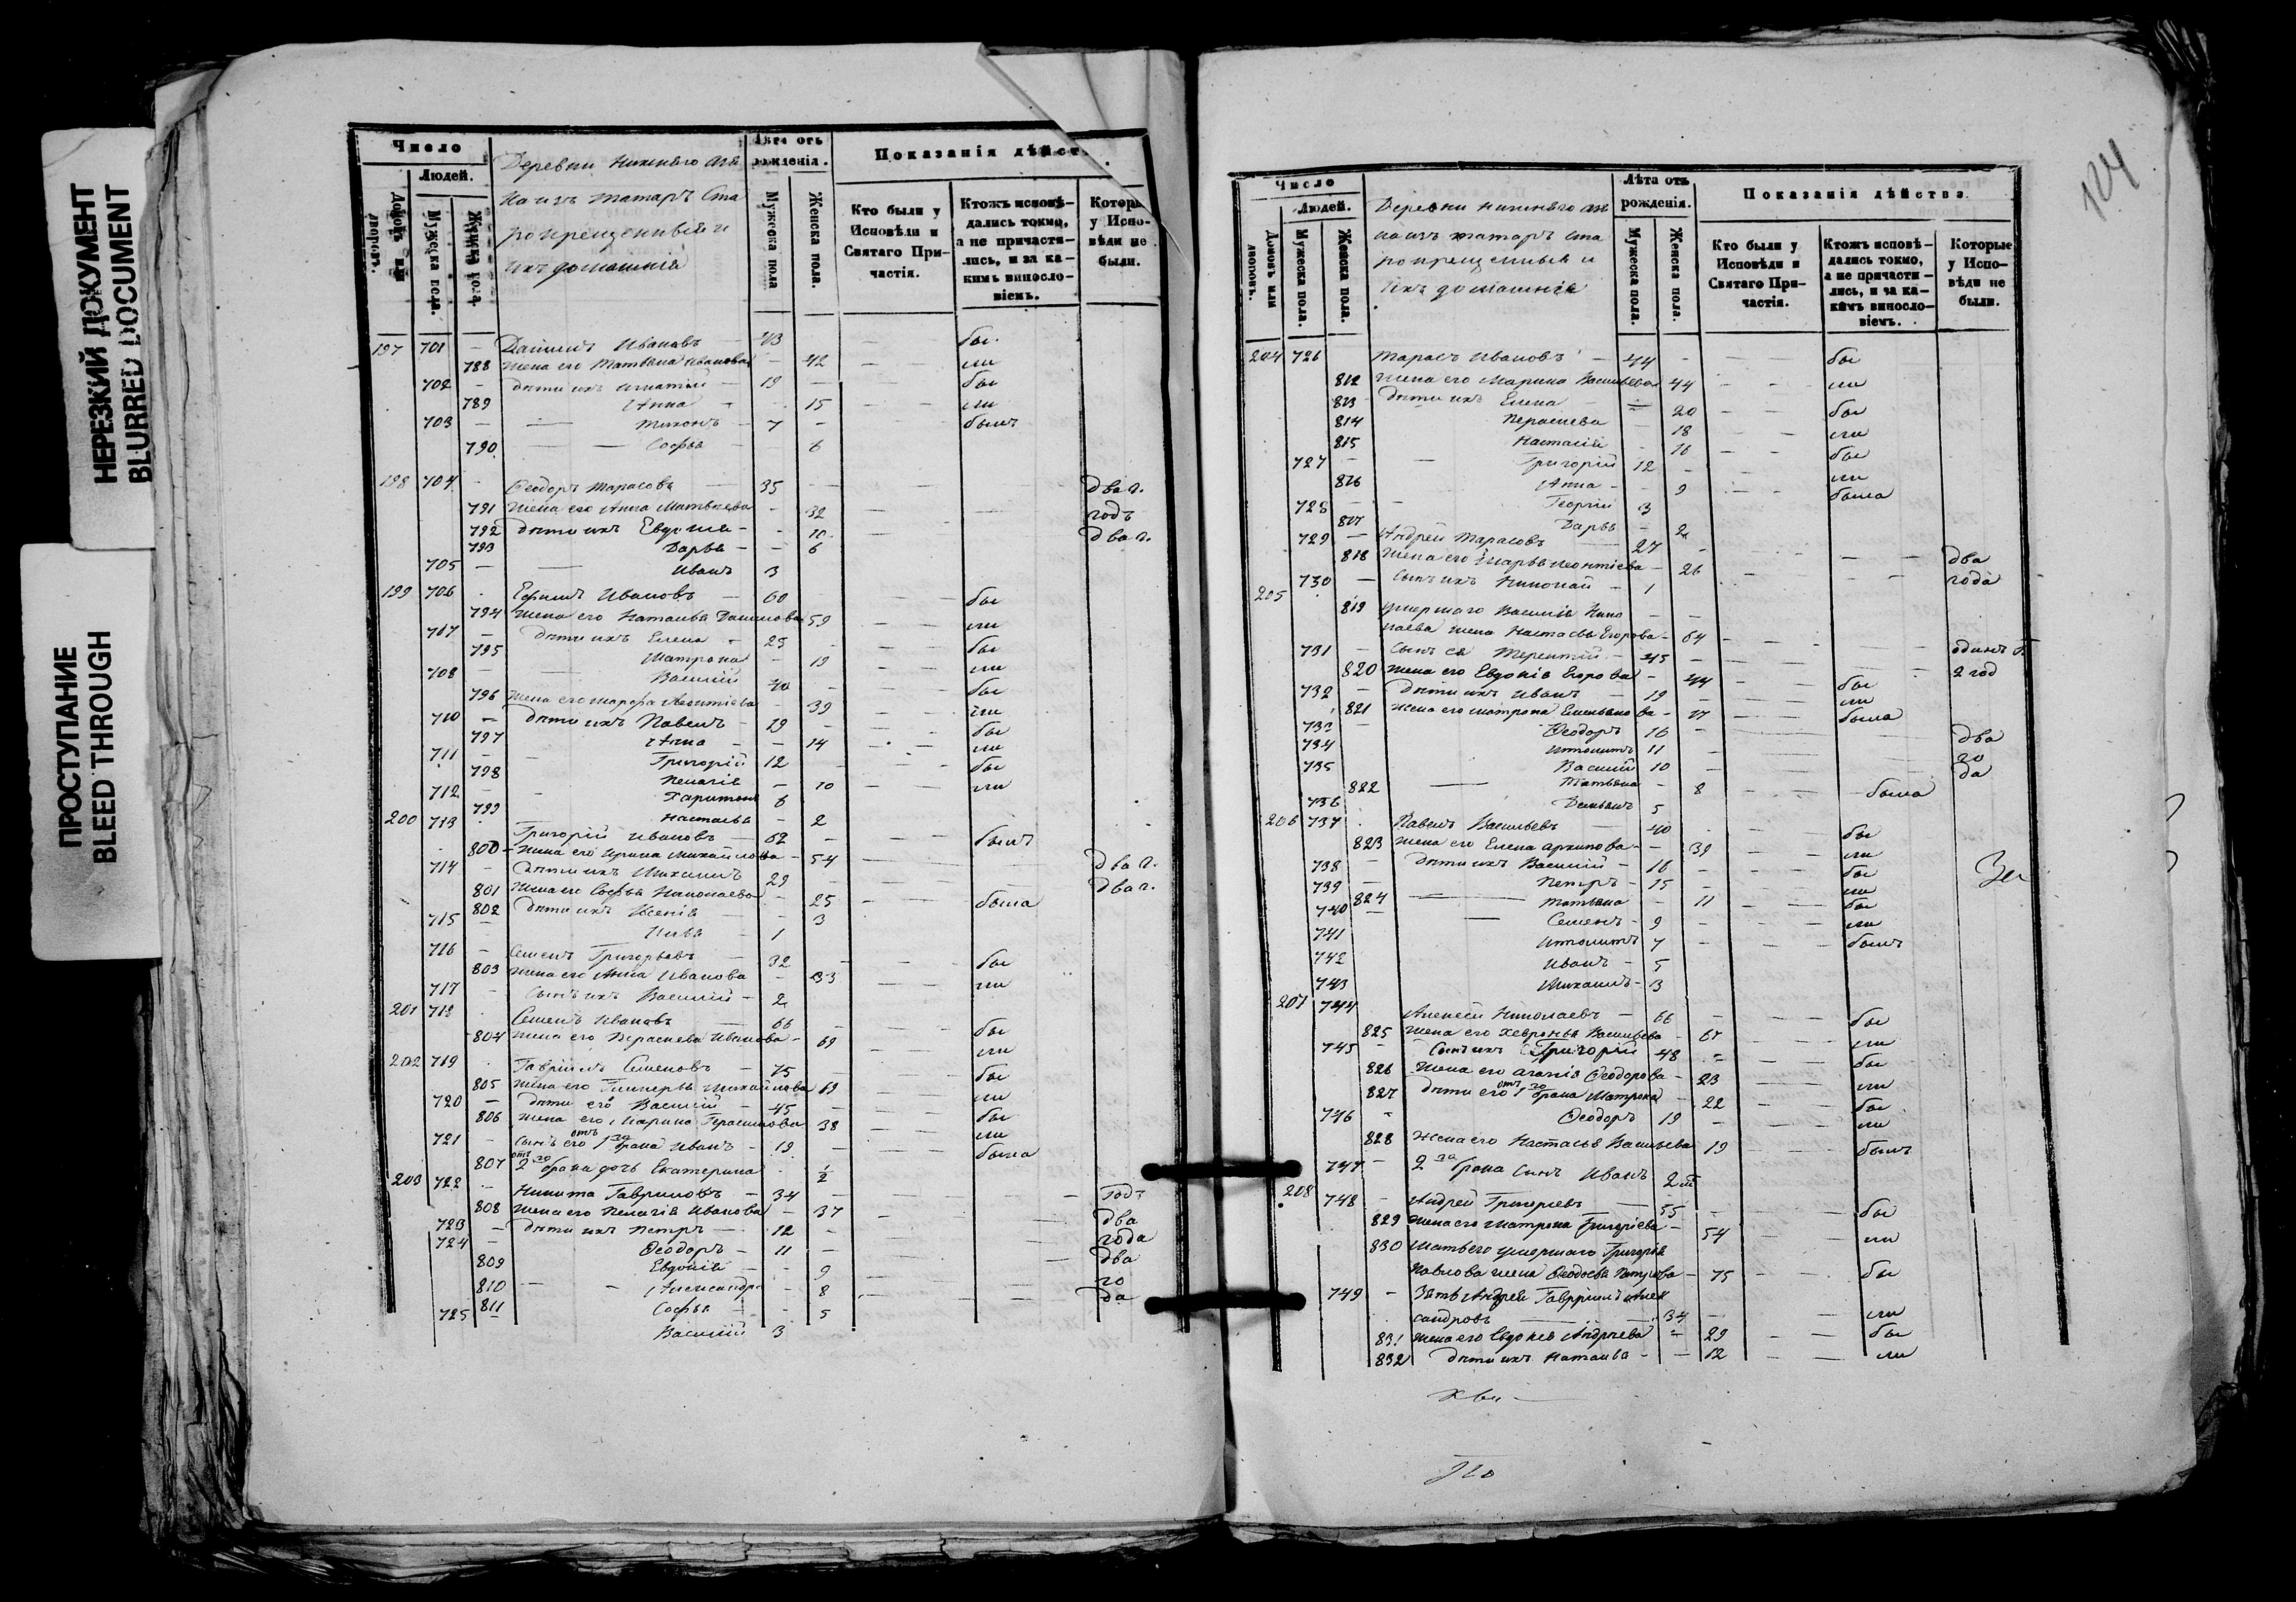 НЕРЕЗКИЙ ДОКУМЕНТ
BLURRED DOCUMENT
ПРОСТУПАНИЕ
BLEED THROUGH
Число
Людей.
Домовъ или дворовъ.
Мужеска пола.
Женска пола.
Деревни Нижняго
на изъ татаръ Ста
рокрещенныя и
ихъ домашнія
Лѣта отъ рожденія.
Мужеска пола
Женска пола.
Показанія дѣйст
Кто были у Исповѣди и Святаго Причастія.
Ктожъ исповѣдались токмо, а не причастились, и за какимъ винословіемъ.
Которы у Исповѣди не были.
197 701 – Данилъ Ивановъ – 43 бы
788 Жена его Татьяна Иванова – 42 ли
702 – дѣти ихъ Игнатій – 19 – бы
789 Анна – 15 ли
703 – Тихонъ – 7 – былъ
790 Софья – 6
198 704 Ѳеодоръ Тарасовъ – 35 два г.
791 Жена его Анна Матвѣева – 32 годъ
792 дѣти ихъ Евдокія – 10 два г.
793 Дарья – 6
705 – Иванъ 3
199 706 Ефимъ Ивановъ – 60 бы
794 Жена его Наталья Данилова 59 ли
707 – дѣти ихъ Елена – 25 бы
795 Матрона – 19 ли
708 Василій 40 бы
796 Жена его Марфа Леонтіева – 39 ли
710 – дѣти ихъ Павелъ – 19 – бы
797 Анна – 14 ли
711 Григорій 12 бы
798 Пелагія – 10 ли
712 Харитонъ 6
799 Настасья – 2
200 713 Григорій Ивановъ – 62 – былъ
800 – Жена его Ирина Михайлова – 54 два г.
714 – дѣти ихъ Михаилъ 29 два г.
801 Жена его Софья Николаева – 25 была
802 дѣти ихъ Ксенія – 3
715 – Илья – 1
716 – Семенъ Григорьевъ – 32 бы
803 Жена его Анна Иванова – 33 ли
717 – Сынъ ихъ Василій – 2
201 718 Семенъ Ивановъ – 66 – бы
804 Жена его Параскева Иванова – 69 ли
202 719 Гавріилъ Семеновъ – 75 бы
805 Жена его Гликерья Михайлова 69 ли
720 – дѣти его Василій – 45 бы
806 Жена его Марина Герасимова 38 ли
721 – Сынъ его отъ 1го брака Иванъ – 19 – была
807 отъ 2го брака дочь Екатерина 1/2
203 722 – Никита Гавриловъ – 34 – годъ
808 Жена его Пелагія Иванова – 37 два
723 – дѣти ихъ Петръ – 12 – года
724 – Ѳеодоръ – 11 – два
809 Евдокія – 9 го
810 – Александра – 8 да
811 Софья – 5
725 – Василій 3
104
Число
Людей.
Домовъ или дворовъ.
Мужеска пола.
Женска пола.
Деревни Нижняго
на изъ татаръ Ста
рокрещенныя и
ихъ домашнія
Лѣта отъ рожденія.
Мужеска пола.
Женска пола.
Показанія дѣйства
Кто были у Исповѣди и Святаго Причастія.
Ктожъ исповѣдались токмо, а не причастились, и за какимъ винословіемъ.
Которые у Исповѣди не были.
204 726 Тарасъ Ивановъ – 44 – бы
812 Жена его Марина Васильева 44 ли
813 дѣти ихъ Елена – 20 бы
814 Параскева – 18 ли
815 Настасія – 16 бы
727 – Григорій 12 – ли
816 Анна – 9 была
728 Георгій 3
817 Дарья – 2
729 – Андрей Тарасовъ – 27 – два
818 Жена его Марья Леонтіева – 26 года
730 – Сынъ ихъ Николай – 1
205 819 умершаго Василія Нико
лаева жена Настасья Егорова – 64 – одинъ г.
731 – Сынъ ея Терентій – 45 – 2 год
820 Жена его Евдокія Егорова – 44 бы
732 – дѣти ихъ Иванъ – 19 – ли
821 Жена его Матрона Емельянова – 17 была
733 Ѳеодоръ 16 – два
734 Ипполитъ 11 – го
735 Василій 10 – да
822 Татьяна – 8 – была
736 Демьянъ 5
206 737 Павелъ Васильевъ – 40 бы
823 Жена его Елена Архипова – 39 ли
738 – дѣти ихъ Василій – 16 бы
739 – Петръ – 15 – ли
824 Татьяна – 11 бы
740 – Семенъ – 9 – ли
741 Ипполитъ 7 – былъ
742 Иванъ – 5
743 Михаилъ – 3
207 744 Алексей Николаевъ – 66 – бы
825 Жена его Хевронья Васильева – 67 ли
745 – Сынъ ихъ Григорій 48 бы
826 Жена его Агапія Ѳеодорова – 23 ли
827 дѣти его отъ 1го брака Матрона – 22 бы
746 – Ѳеодоръ 19 – ли
828 Жена его Настасья Васильева 19 былъ
747 – 2го брака Сынъ Иванъ 2 м
208 748 – Андрей Григорьевъ – 55 – бы
829 Жена его Матрона Григорьева – 54 ли
830 Мать его умершаго Григорія
Павлова жена Ѳеодосья Петрова – 75 бы
749 – Зять Андрея Гавріилъ Алек
сандровъ – 34 – ли
831 Жена его Евдокія Андреева – 29 бы
832 дѣти ихъ Наталья – 12 ли